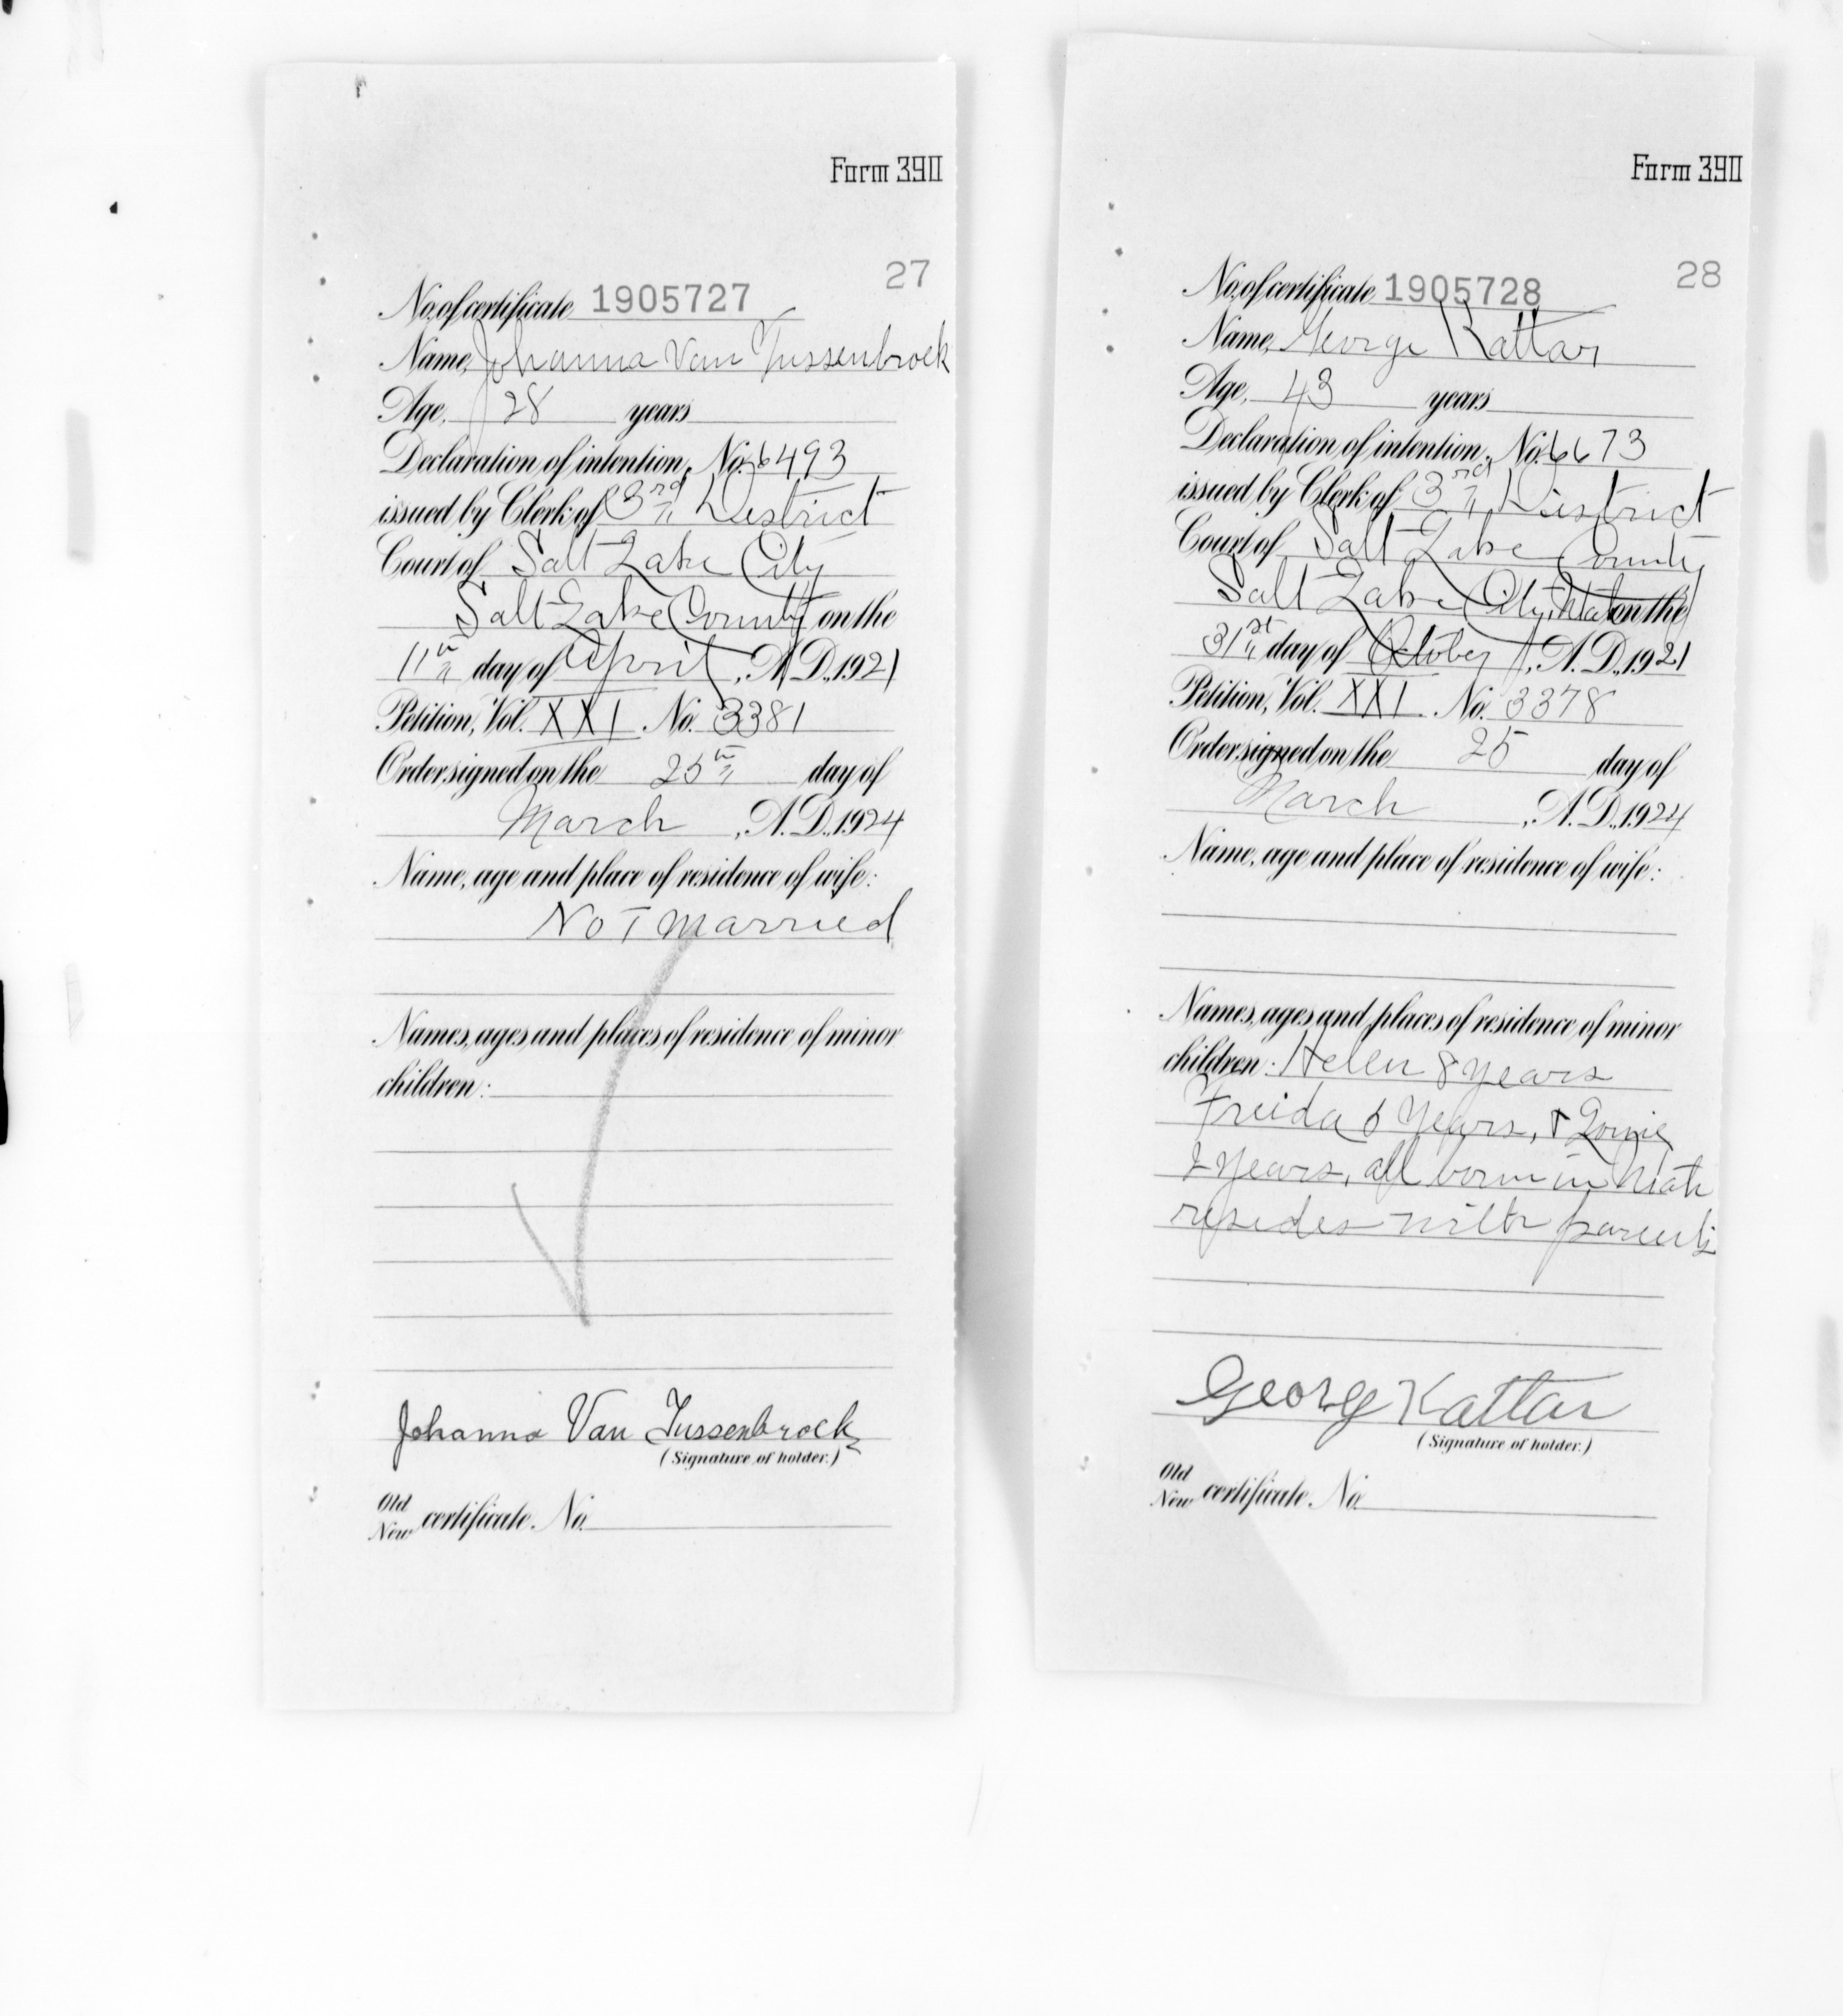 Form 390
27
No. of certificate 1905727
Name, Johanna Van Tussenbrock
Age, 28 years
Declaration of intention, No. 6493
issued by Clerk of 3rd District
Court of Salt Lake City
Salt Lake County on the
11th day of April, A.D., 1921
Petition, Vol. XXI No. 3381
Order signed on the 25th day of
March, A.D., 1924
Name, age and place of residence of wife:
Not Married
Names, ages and places of residence of minor
children:
Johanna Van Tussenbrock
(Signature of holder.)
Old
New certificate. No.
Form 390
28
No. of certificate 1905728
Name, George Kattar
Age, 43 years
Declaration of intention, No. 6673
issued by Clerk of 3rd District
Court of Salt Lake County
Salt Lake City, Utah on the
31st day of October, A.D., 1921
Petition, Vol. XXI No. 3378
Order signed on the 25 day of
March, A.D., 1924
Name, age and place of residence of wife:
Names, ages and places of residence of minor
children: Helen 8 years
Freida 6 years, &
2 years, all born in Utah
resides with parents
George Kattar
(Signature of holder.)
Old
New certificate. No.